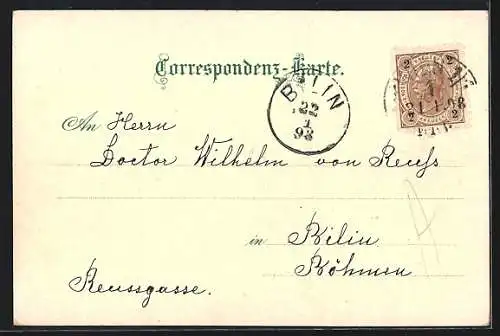 Correspondenz-Karte.
BILIN
22
1
98
2 2
2 2
1. 98
An Herrn
Doctor Wilhelm von Reuss
in Bilin
Böhmen
Reussgasse.